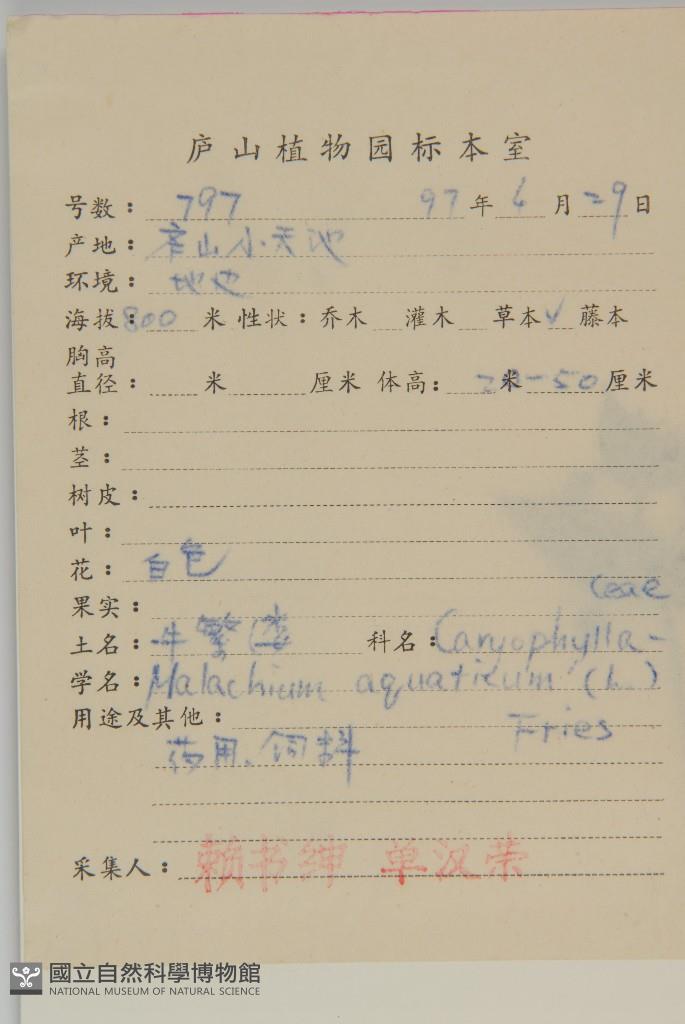 庐山植物园标本室
号数：797 97年6月29日
产地：庐山小天池
环境：地边
海拔：800米 性状：乔木 灌木 草本√ 藤本
胸高
直径： 米 厘米 体高： 米-50厘米
根：
茎：
树皮：
叶：
花：白色
果实：
土名：牛繁缕 科名：Caryophylla-ceae
学名：Malachium aquaticum (L.)
Fries
用途及其他：
药用、饲料
采集人：赖书绅 单汉荣
國立自然科學博物館
NATIONAL MUSEUM OF NATURAL SCIENCE